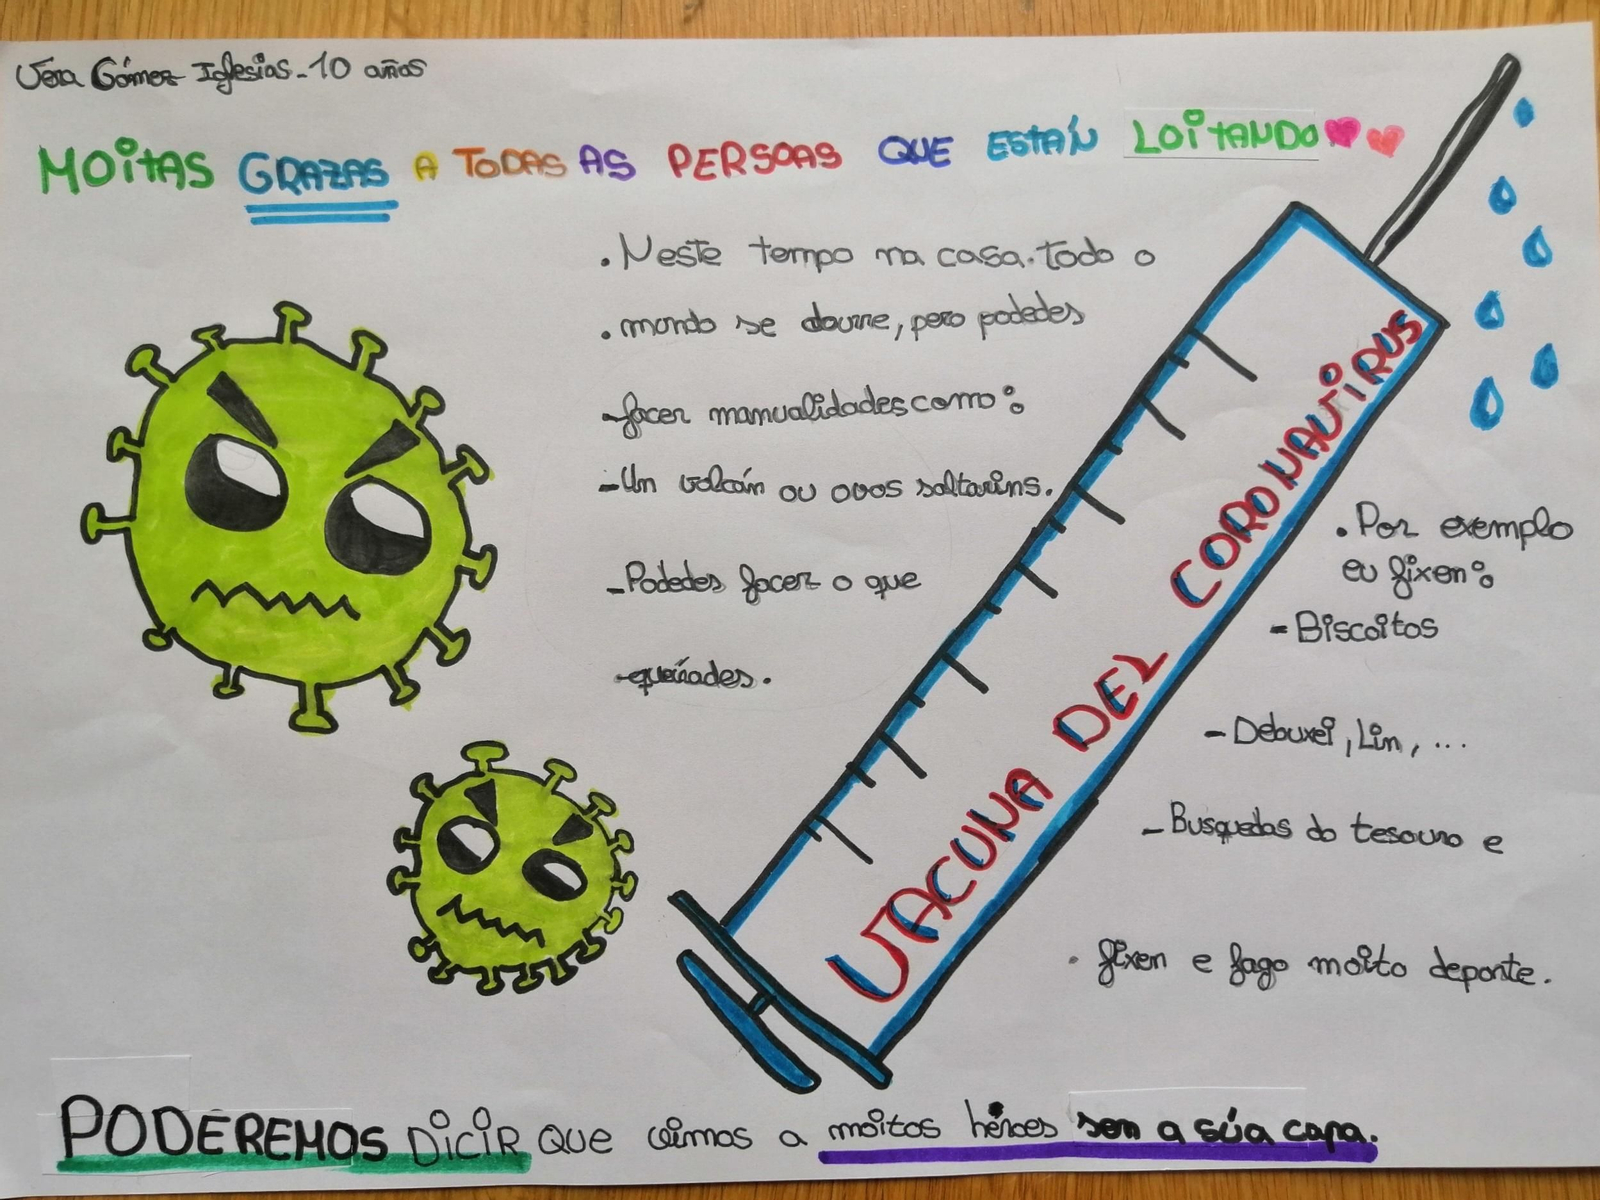 Vera Gómez Iglesias-10 años
MOITAS GRAZAS A TODAS AS PERSOAS QUE ESTÁN LOITANDO
.Neste tempo na casa.todo o
.mundo se aburre, pero podedes
-facer manualidades como:
-Un volcán ou ovos saltaríns.
-Podedes facer o que
-queirades.
VACUNA DEL CORONAVIRUS
.Por exemplo
eu fixen:
-Biscoitos
-Debuxei, Lin, ...
-Busquedas do tesouro e
. fixen e fago moito deporte.
PODEREMOS DICIR QUE vimos a moitos héroes sen a súa capa.